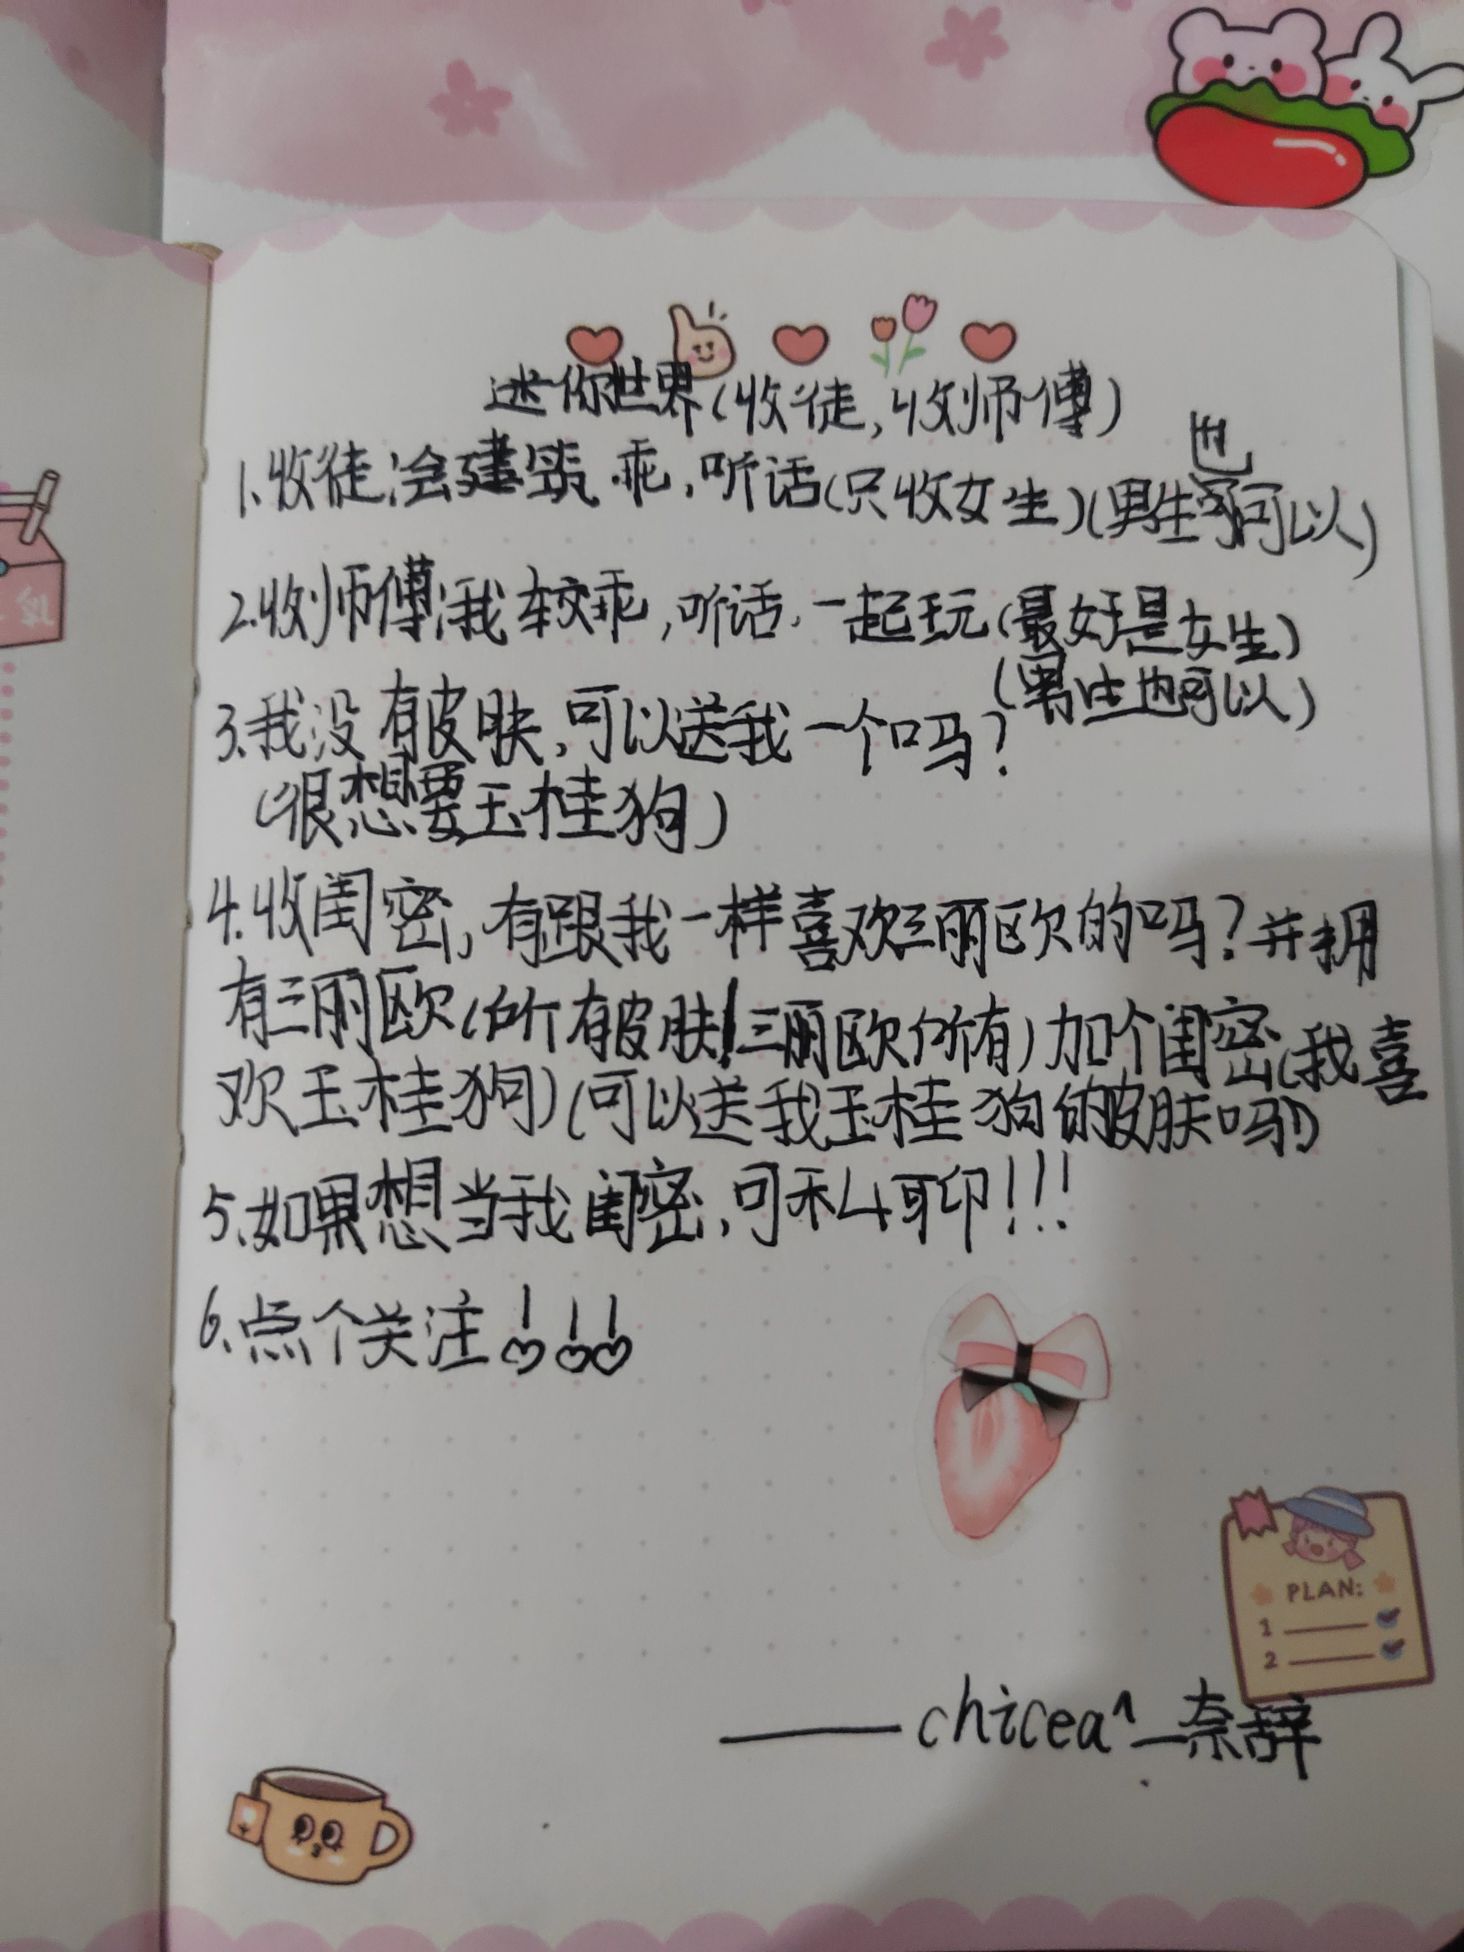 迷你世界(收徒,收师傅)
1.收徒:会建筑.乖,听话(只收女生)(男生也可以)
2.收师傅:我较乖,听话,一起玩(最好是女生)
(男生也可以)
3.我没有皮肤,可以送我一个吗?
(很想要玉桂狗)
4.收闺密,有跟我一样喜欢三丽欧的吗?并拥
有三丽欧(所有皮肤/三丽欧所有)加个闺密(我喜
欢玉桂狗)(可以送我玉桂狗的皮肤吗!)
5.如果想当我闺密,可私聊!!!
6.点个关注!!!
PLAN:
1
2
——chicea^—奈辞
乳